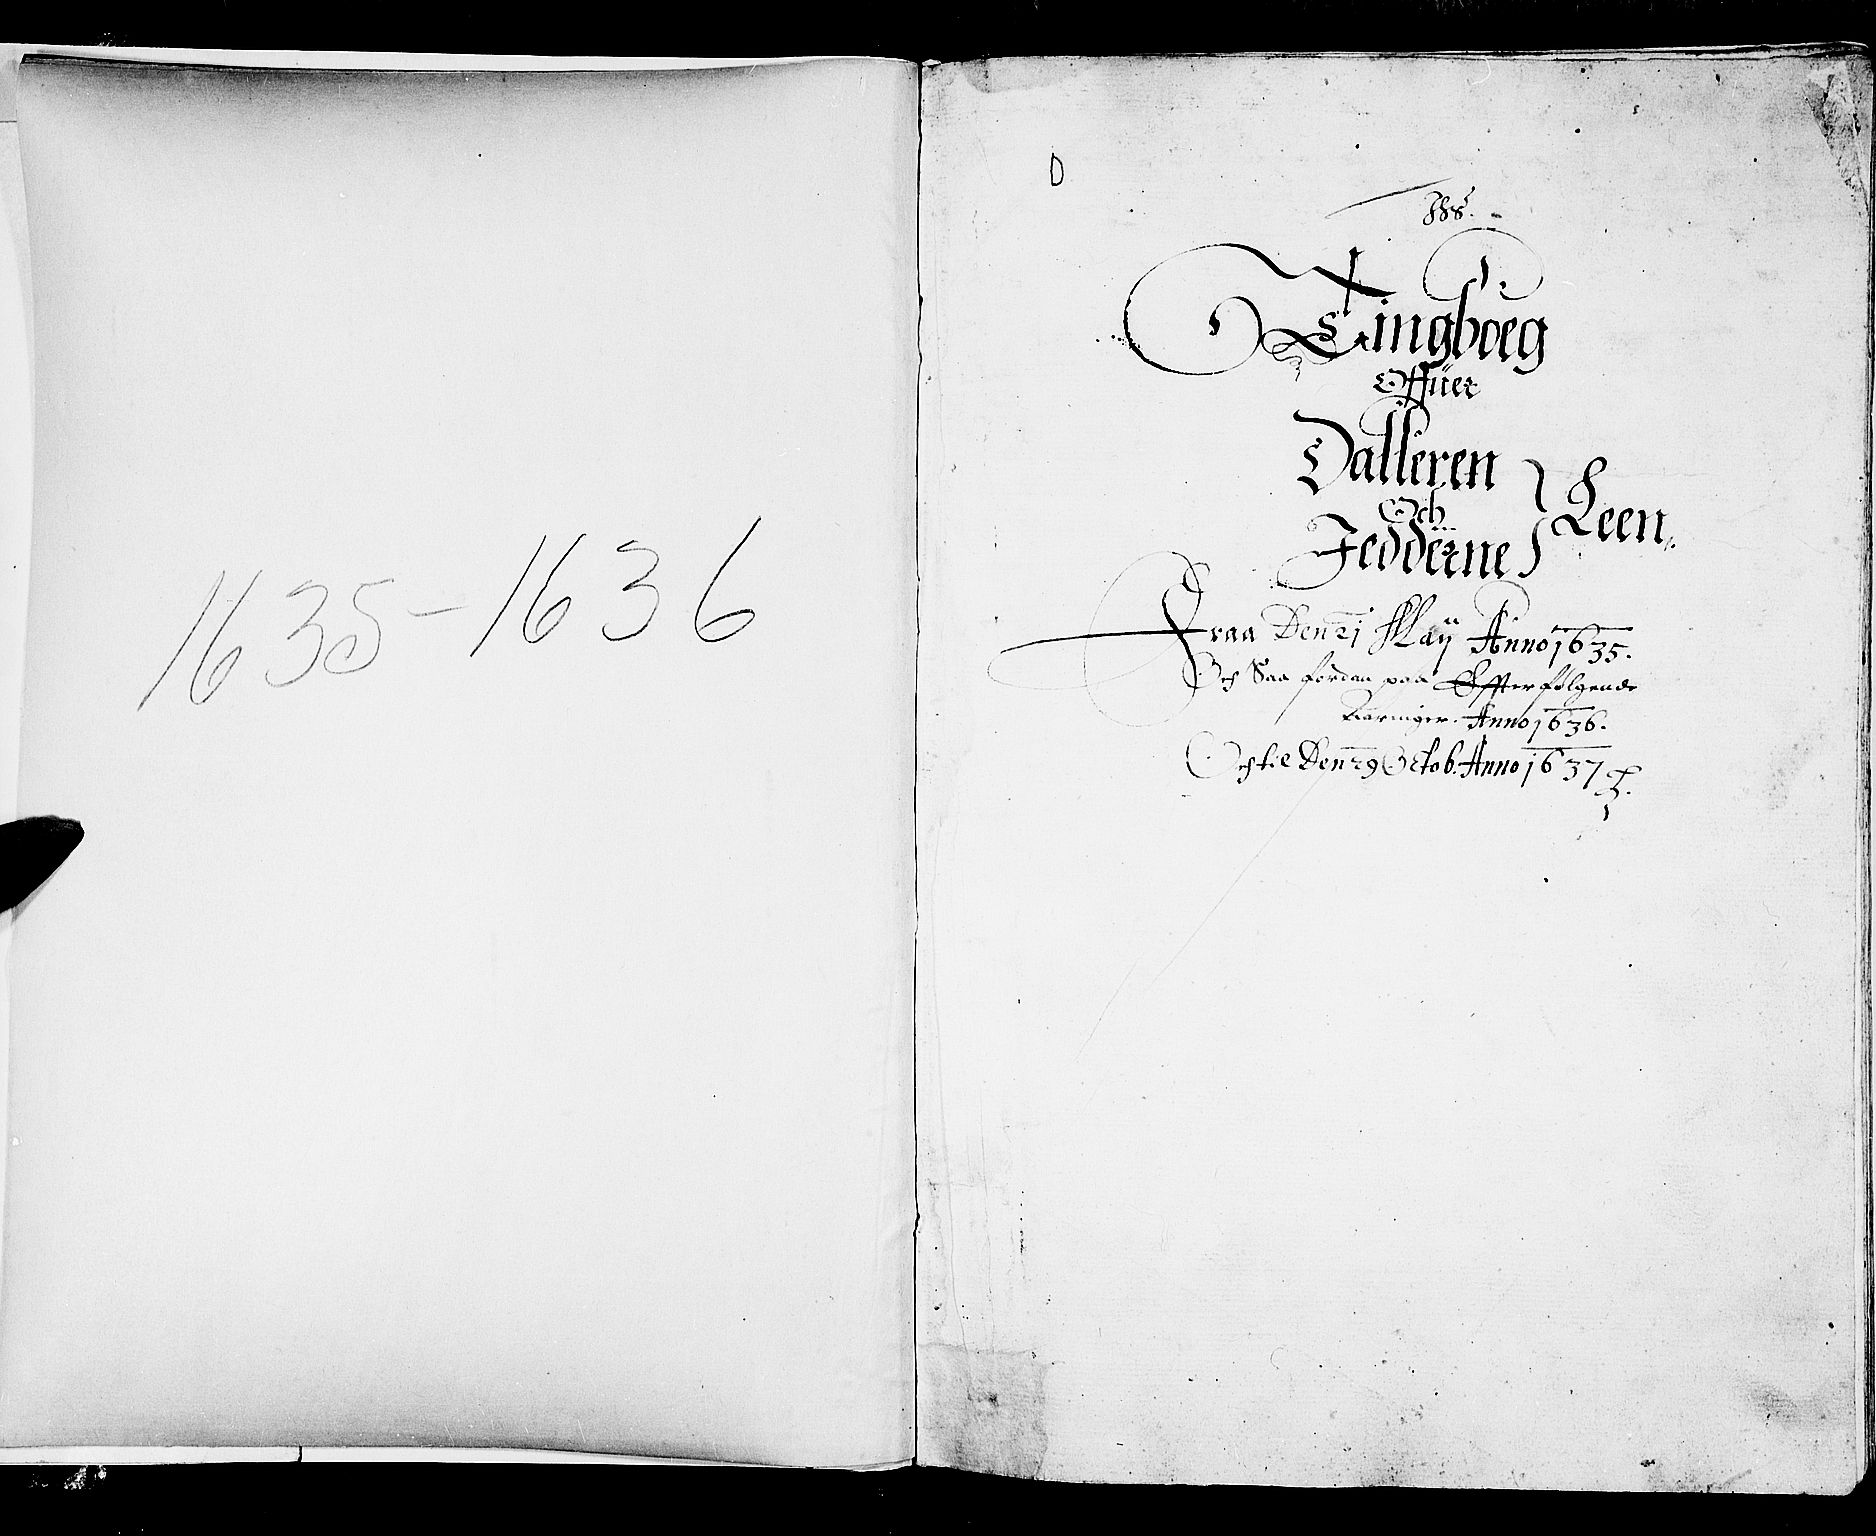 1635-1636
D
JHS.
Tingboeg
Offuer
Dalleren
Och
Jedderne } Leen.
Fraa Den 21 Maij Anno 1635.
Och Saa fordan paa Effterfølgende
Aaringer. Anno 1636.
Och til Den 29 Octob. Anno 1637